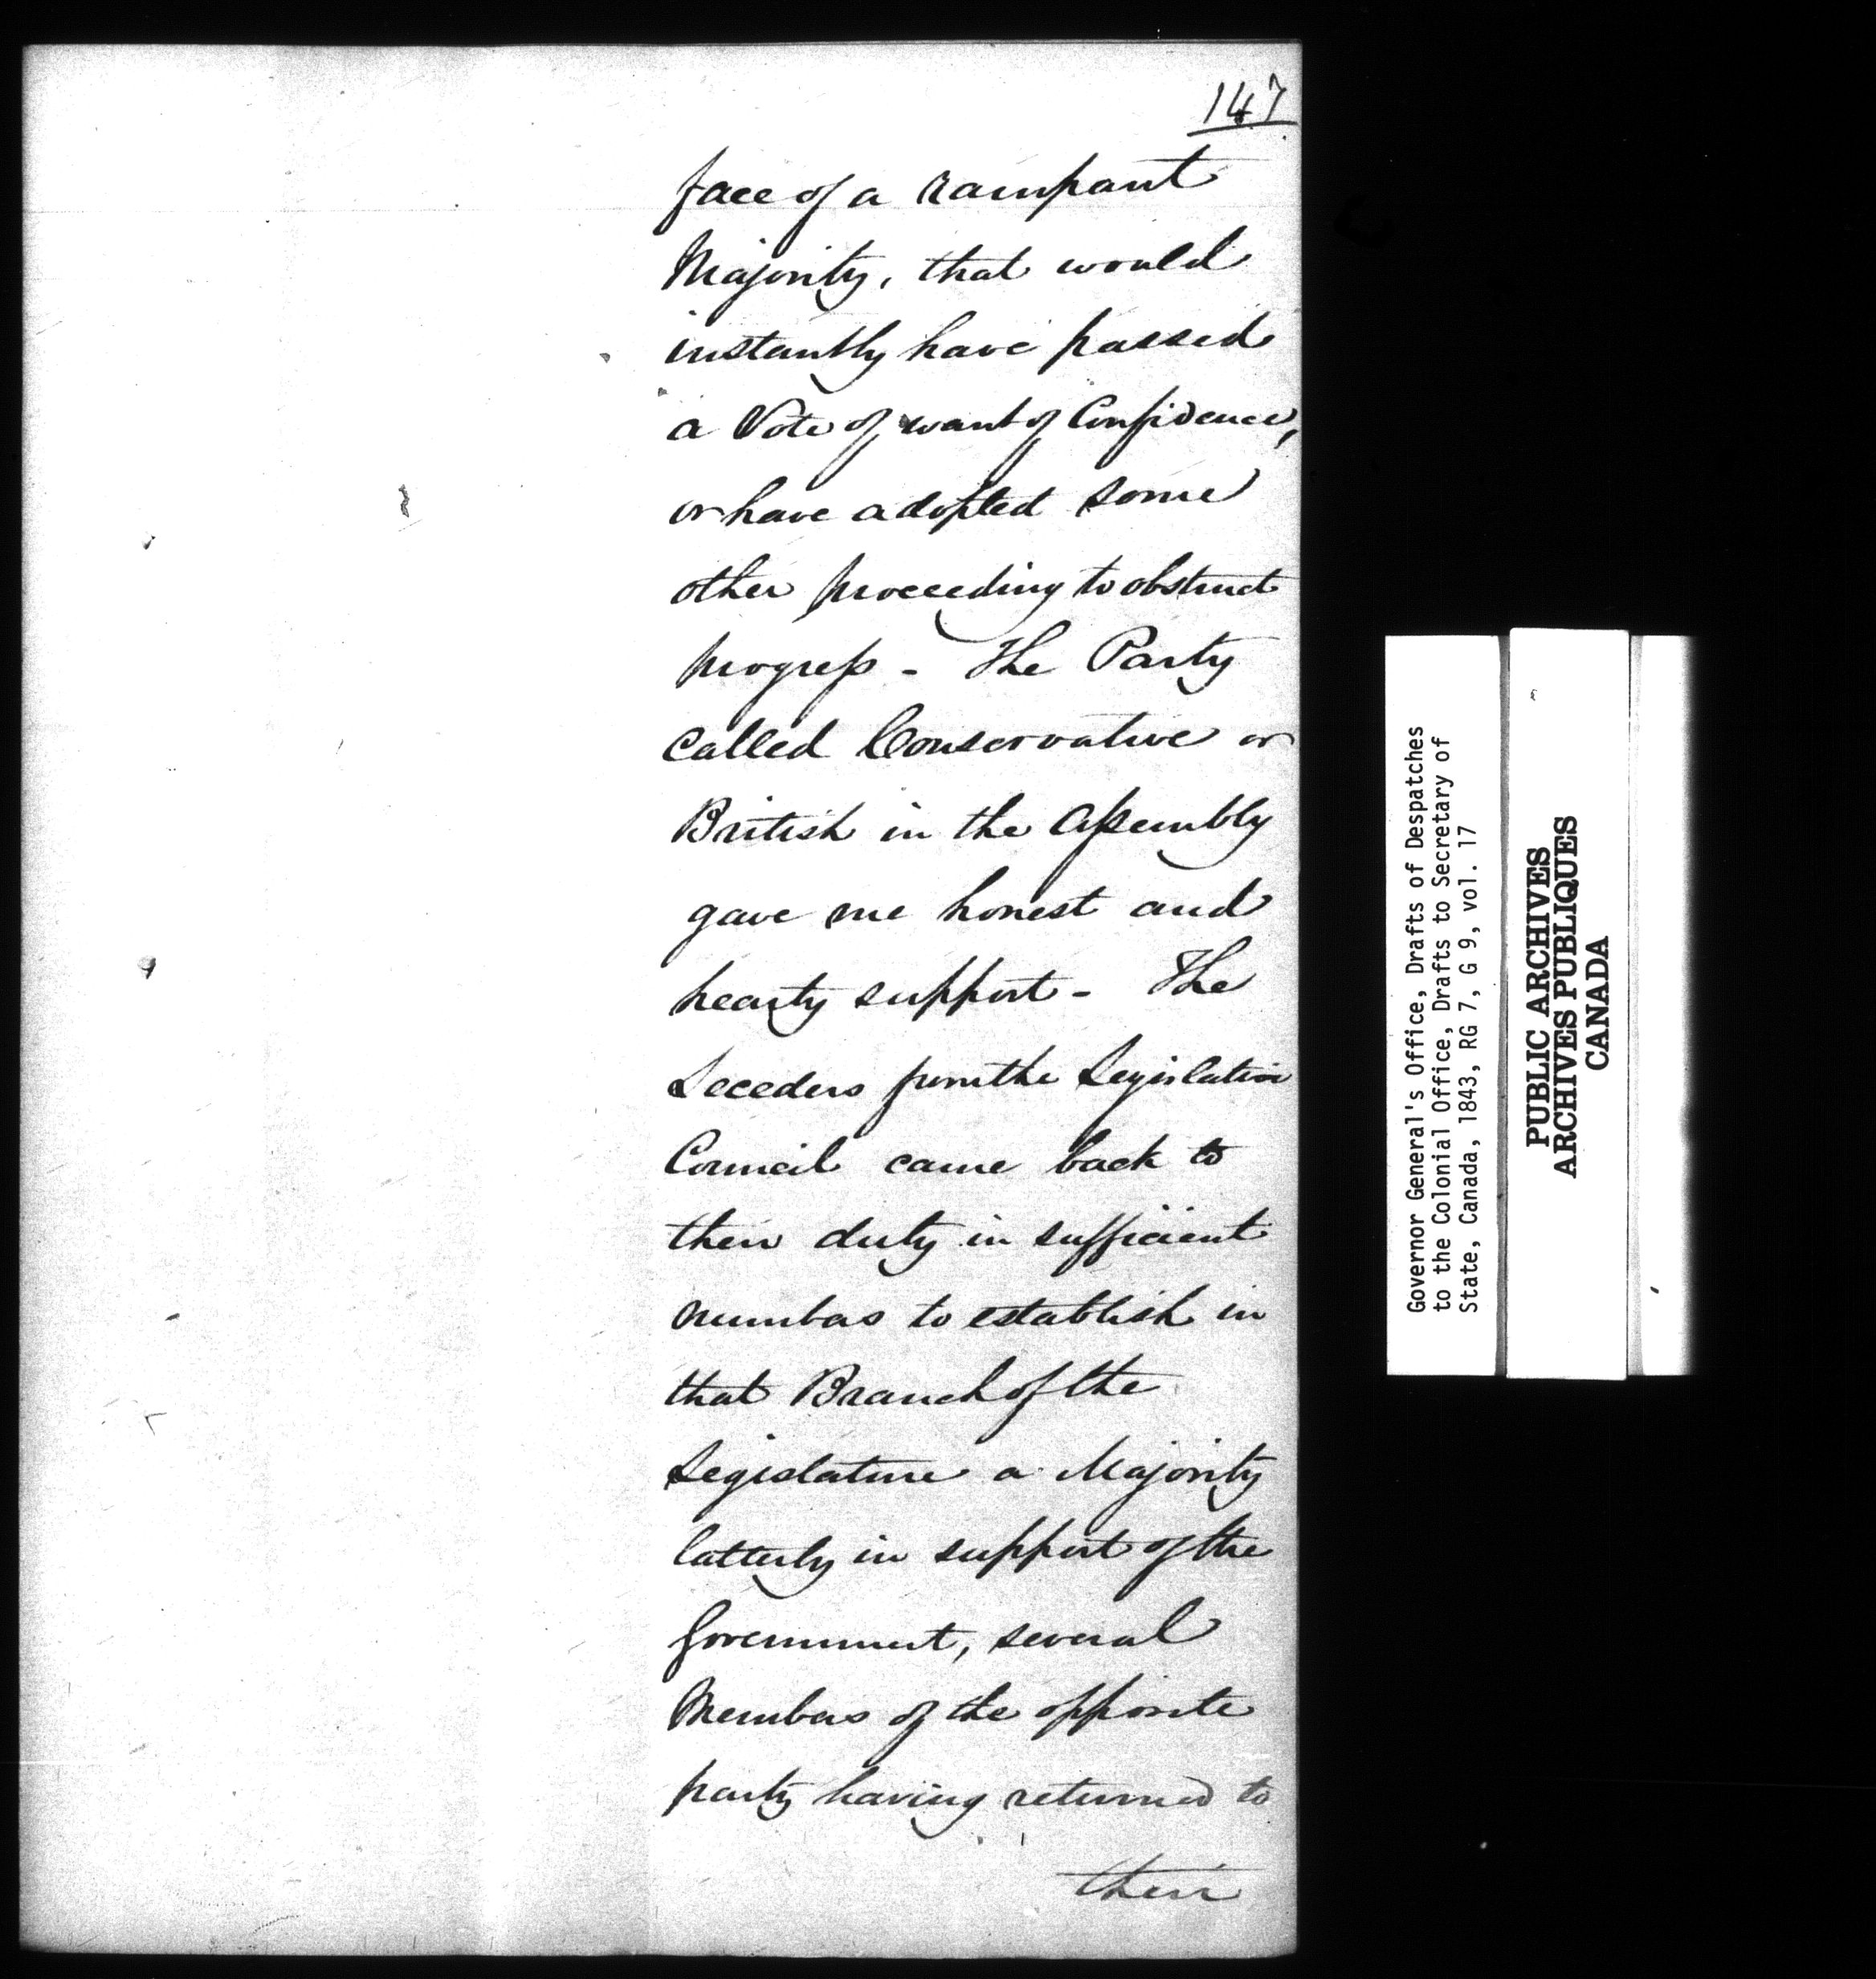 147
face of a rampant
Majority, that would
instantly have passed
a Vote of want of Confidence,
or have adopted some
other proceeding to obstruct
progress - The Party
called Conservative or
British in the Assembly
gave me honest and
hearty support - The
Seceders from the Legislative
Council came back to
their duty in sufficient
numbers to establish in
that Branch of the
Legislature a Majority
latterly in support of the
Government, several
Members of the opposite
party having returned to
their
Governor General's Office, Drafts of Despatches
to the Colonial Office, Drafts to Secretary of
State, Canada, 1843, RG 7, G 9, vol. 17
PUBLIC ARCHIVES
ARCHIVES PUBLIQUES
CANADA